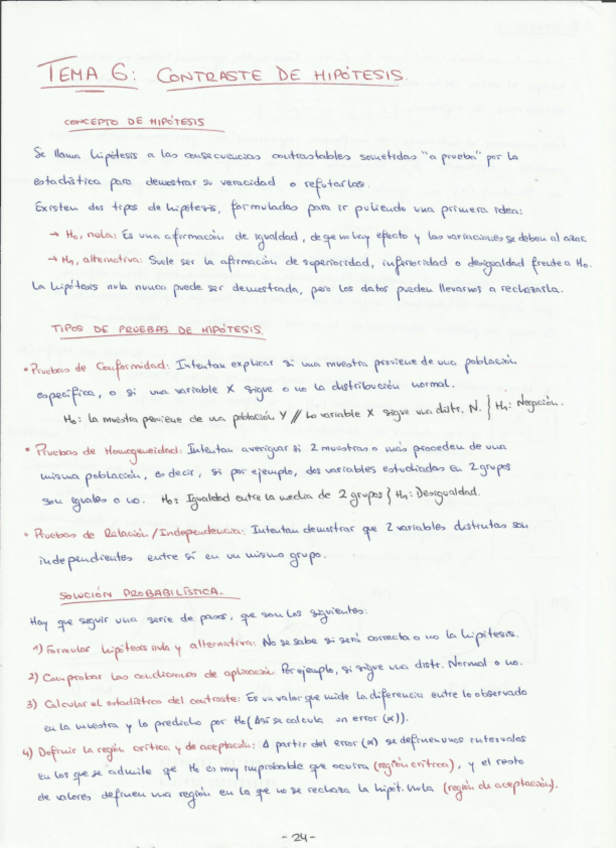 TEMA 6: CONTRASTE DE HIPÓTESIS.
CONCEPTO DE HIPÓTESIS
Se llama hipótesis a las consecuencias contrastables sometidas "a prueba" por la
estadística para demostrar su veracidad o refutarlas.
Existen dos tipos de hipótesis, formuladas para ir puliendo una primera idea:
→ H₀, nula: Es una afirmación de igualdad, de que no hay efecto y las variaciones se deben al azar.
→ H₁, alternativa: Suele ser la afirmación de superioridad, inferioridad o desigualdad frente a H₀.
La hipótesis nula nunca puede ser demostrada, pero los datos pueden llevarnos a rechazarla.
TIPOS DE PRUEBAS DE HIPÓTESIS.
• Pruebas de Conformidad: Intentan explicar si una muestra proviene de una población
específica, o si una variable X sigue o no la distribución normal.
H₀: La muestra proviene de una población Y // La variable X sigue una distr. N. } H₁: Negación.
• Pruebas de Homogeneidad: Intentan averiguar si 2 muestras o más proceden de una
misma población, es decir, si por ejemplo, dos variables estudiadas en 2 grupos
son iguales o no. H₀: Igualdad entre la media de 2 grupos } H₁: Desigualdad.
• Pruebas de Relación/Independencia: Intentan demostrar que 2 variables distintas son
independientes entre sí en un mismo grupo.
SOLUCIÓN PROBABILÍSTICA.
Hay que seguir una serie de pasos, que son los siguientes:
1) Formular hipótesis nula y alternativa: No se sabe si será correcta o no la hipótesis.
2) Comprobar las condiciones de aplicación: Por ejemplo, si sigue una distr. Normal o no.
3) Calcular el estadístico del contraste: Es un valor que mide la diferencia entre lo observado
en la muestra y lo predicho por H₀ (Así se calcula un error (α)).
4) Definir la región crítica y de aceptación: A partir del error (α) se definen unos intervalos
en los que se admite que H₀ es muy improbable que ocurra (región crítica), y el resto
de valores definen una región en la que no se rechaza la hipót. nula (región de aceptación).
- 24 -